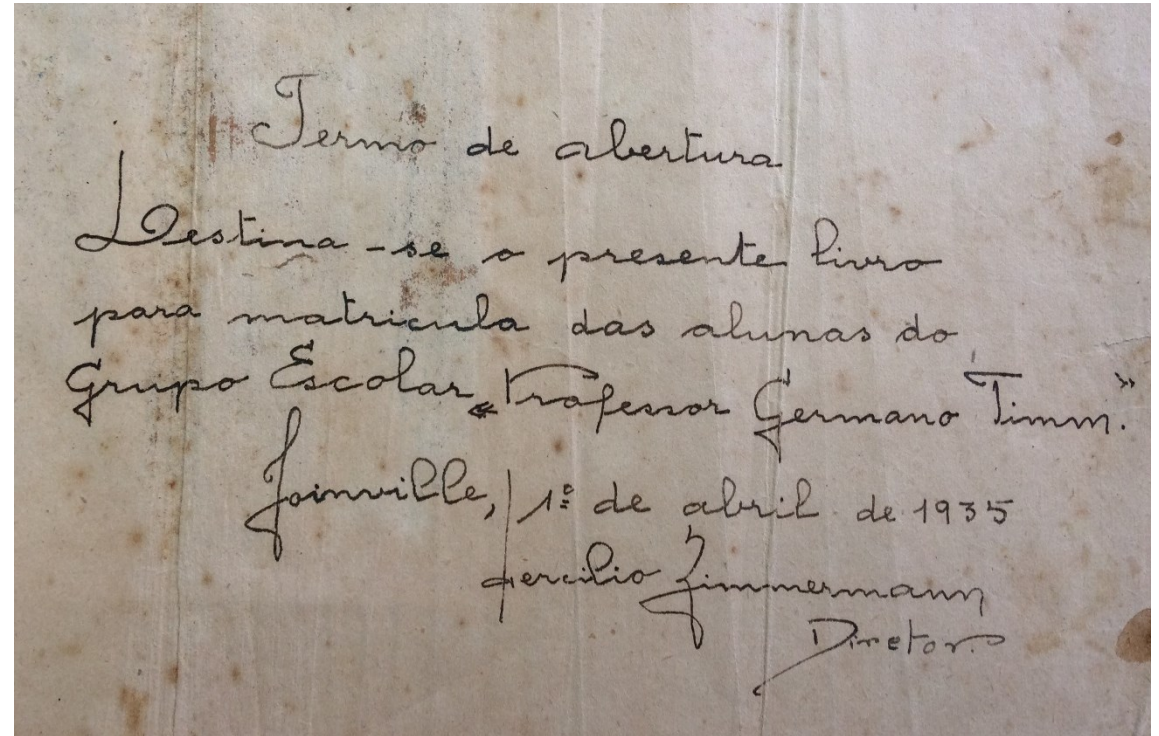 Termo de abertura
Destina-se o presente livro
para matricula das alunas do
Grupo Escolar « Professor Germano Timm. »
Joinville, 1º de abril de 1935
Hercilio Zimmermann
Diretor.